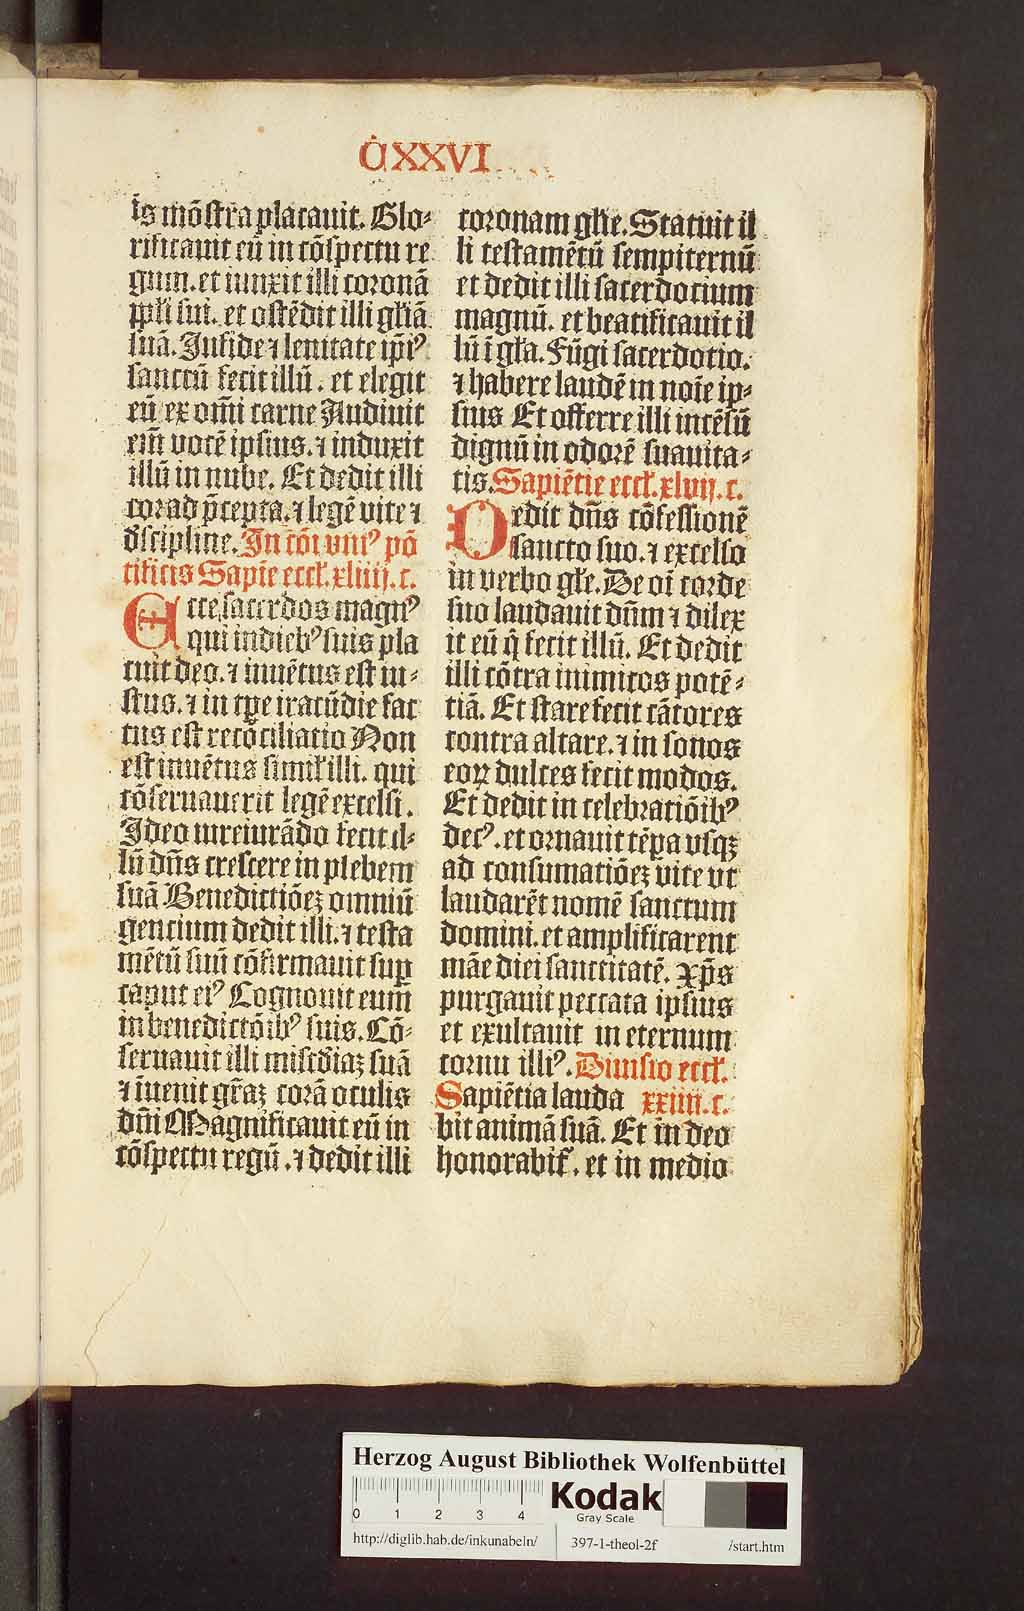 CXXVI
is mōſtra placauit. Glo⸗
rificauit eū in cōſpectu re
gum. et iunxit illi coronā
ppl̄i ſui. et oſtēdit illi gl̄iā
ſuā. In fide ⁊ lenitate ip̄iꝰ
ſanctū fecit illū. et elegit
eū ex om̄i carne Audiuit
em̄ vocē ipſius. ⁊ induxit
illū in nube. Et dedit illi
cor ad p̄cepta. ⁊ legē vite ⁊
dſcipline. In cōi vniꝰ pō
tificis Sapiē eccl̄. xliiij. c.
Ecce ſacerdos magnꝰ
qui in diebꝰ ſuis pla
cuit deo. ⁊ inuētus eſt iu⸗
ſtus. ⁊ in tp̄e iracūdie fac
tus eſt recōciliatio Non
eſt inuētus ſimil̄ illi. qui
cōſeruauerit legē excelſi.
Ideo iureiurādo fecit il⸗
lū dn̄s creſcere in plebem
ſuā Benedictiōeꝫ omniū
gencium dedit illi. ⁊ teſta
mētū ſuū cōfirmauit ſuꝑ
caput eiꝰ Cognouit eum̄
in benedictōibꝰ ſuis. Cō⸗
ſeruauit illi miſcd̄iaꝫ ſuā
⁊ īuenit gr̄aꝫ corā oculis
dn̄i Magnificauit eū in
cōſpectu regū. ⁊ dedit illi
coronam gl̄ie. Statuit il
li teſtamētū ſempiternū
et dedit illi ſacerdocium
magnū. et beatificauit il
lū ī gl̄a. Fūgi ſacerdotio.
⁊ habere laudē in noīe ip⸗
ſius Et offerre illi incēſū
dignū in odorē ſuauita⸗
tis. Sapiētie eccl̄. xlvij. c.
Dedit dn̄s cōfeſſionē
ſancto ſuo. ⁊ excelſo
in verbo gl̄e. De oī corde
ſuo laudauit dn̄m ⁊ dilex
it eū q̄ fecit illū. Et dedit
illi cōtra inimicos potē⸗
tiā. Et ſtare fecit cātores
contra altare. ⁊ in ſonos
eoꝝ dulces fecit modos.
Et dedit in celebratiōibꝰ
decꝰ. et ornauit tēpa vſqꝫ
ad conſumatiōeꝫ vite vt
laudarēt nomē ſanctum
domini. et amplificarent
māe diei ſanctitatē. Xp̄s
purgauit peccata ipſius
et exultauit in eternum
cornu illiꝰ. Diuiſio eccl̄.
Sapiētia lauda xxiiij. c.
bit animā ſuā. Et in deo
honorabit̄. et in medio
Herzog August Bibliothek Wolfenbüttel
0 1 2 3 4
Kodak
Gray Scale
http://diglib.hab.de/inkunabeln/ 397-1-theol-2f /start.htm